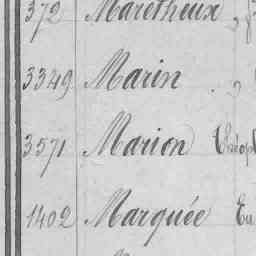 372 Maretheux
3349 Marin
3571 Marion Théop
1402 Marquée Eu